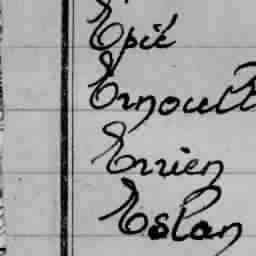 Epié
Ernoult
Errien
Eslan